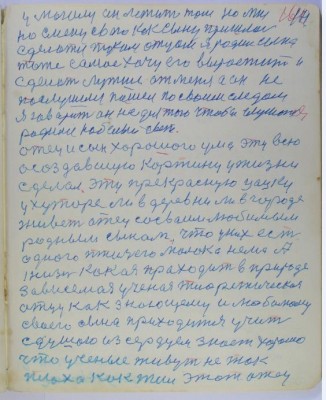 у могилу он летит том но мы
но смену свою как сыну пришлось
сделоти таким отцом я родил сына
тоже самае хочу его вырастит и
сделает лутше от меня а он не
послушался пашел по своим следам
Я говарит он не для того чтобы
родился на белый свет.
отец и сын хорошого ума эту всю
осоздавшую картину у жизни
сделал, эту прекрасную
у хуторе ли в деревни ли в городе
живет отец со своим любимым
родным сыном, что у них ест
одного птичего молока нема. А
жизн какая праходит в природе
зависемая ученая тиоретическая
отцу как знающему и любаному
своего сына приходится учит
с душою и сердцем знает хорошо
что ученые живут не так
плоха как жил этот отец